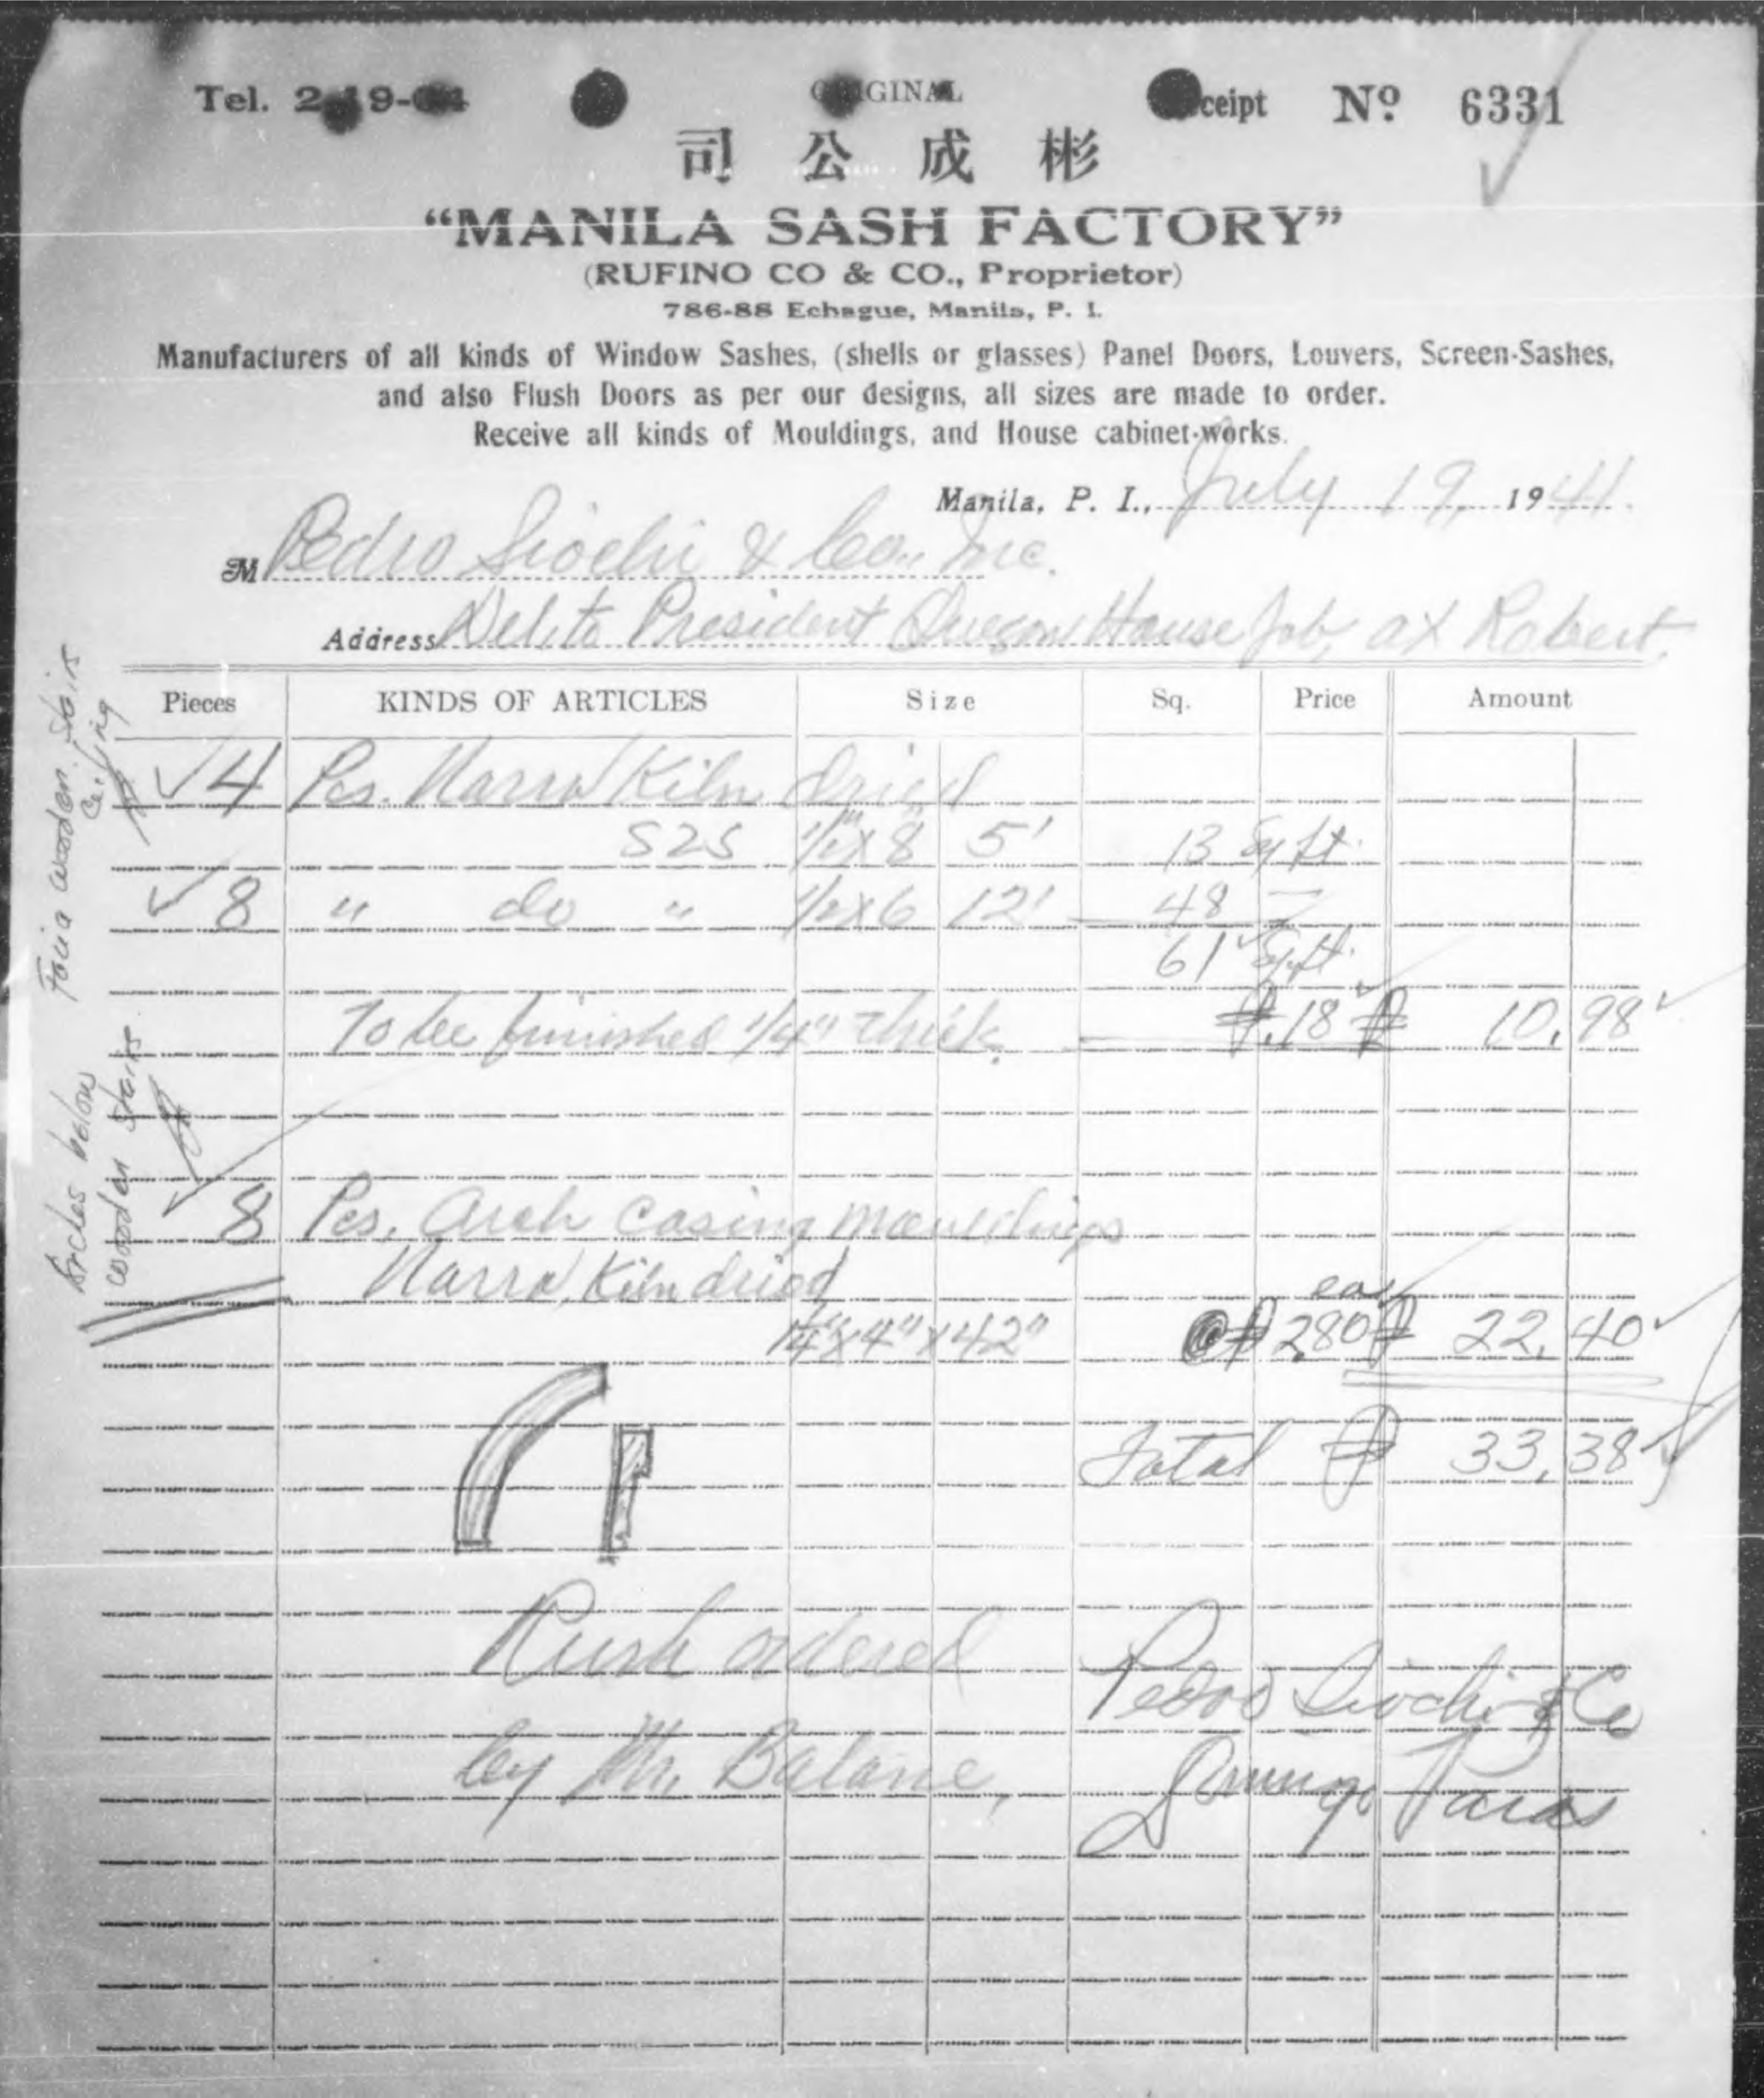 Tel. 2 19-
ORIGINAL
Receipt Nº 6331
司公成彬
“MANILA SASH FACTORY”
(RUFINO CO & CO., Proprietor)
786-88 Echague, Manila, P. I.
Manufacturers of all kinds of Window Sashes, (shells or glasses) Panel Doors, Louvers, Screen-Sashes,
and also Flush Doors as per our designs, all sizes are made to order.
Receive all kinds of Mouldings, and House cabinet-works.
Manila, P. I., July 19, 1941.
M Pedro Siochi & Co., Inc.
Address Del. to President Quezon House Job, at Robert.
Pieces KINDS OF ARTICLES Size Sq. Price Amount
4 Pcs. Narra Kiln dried
S2S 1/2" x 8 5' 13 Sq ft.
8 " do " 1/2 x 6 12' 48
61 Sq ft.
To be finished 1/4" thick. ₱.18 ₱ 10.98
8 Pcs. Arch casing mouldings
Narra, Kiln dried
x 4" x 42" @ ₱ 2.80 ea. ₱ 22.40
Total ₱ 33.38
Rush ordered
by Mr. Balane,
Pedro Siochi & Co
Domingo Paras
wooden stairs
Ceiling
below
wooden stairs